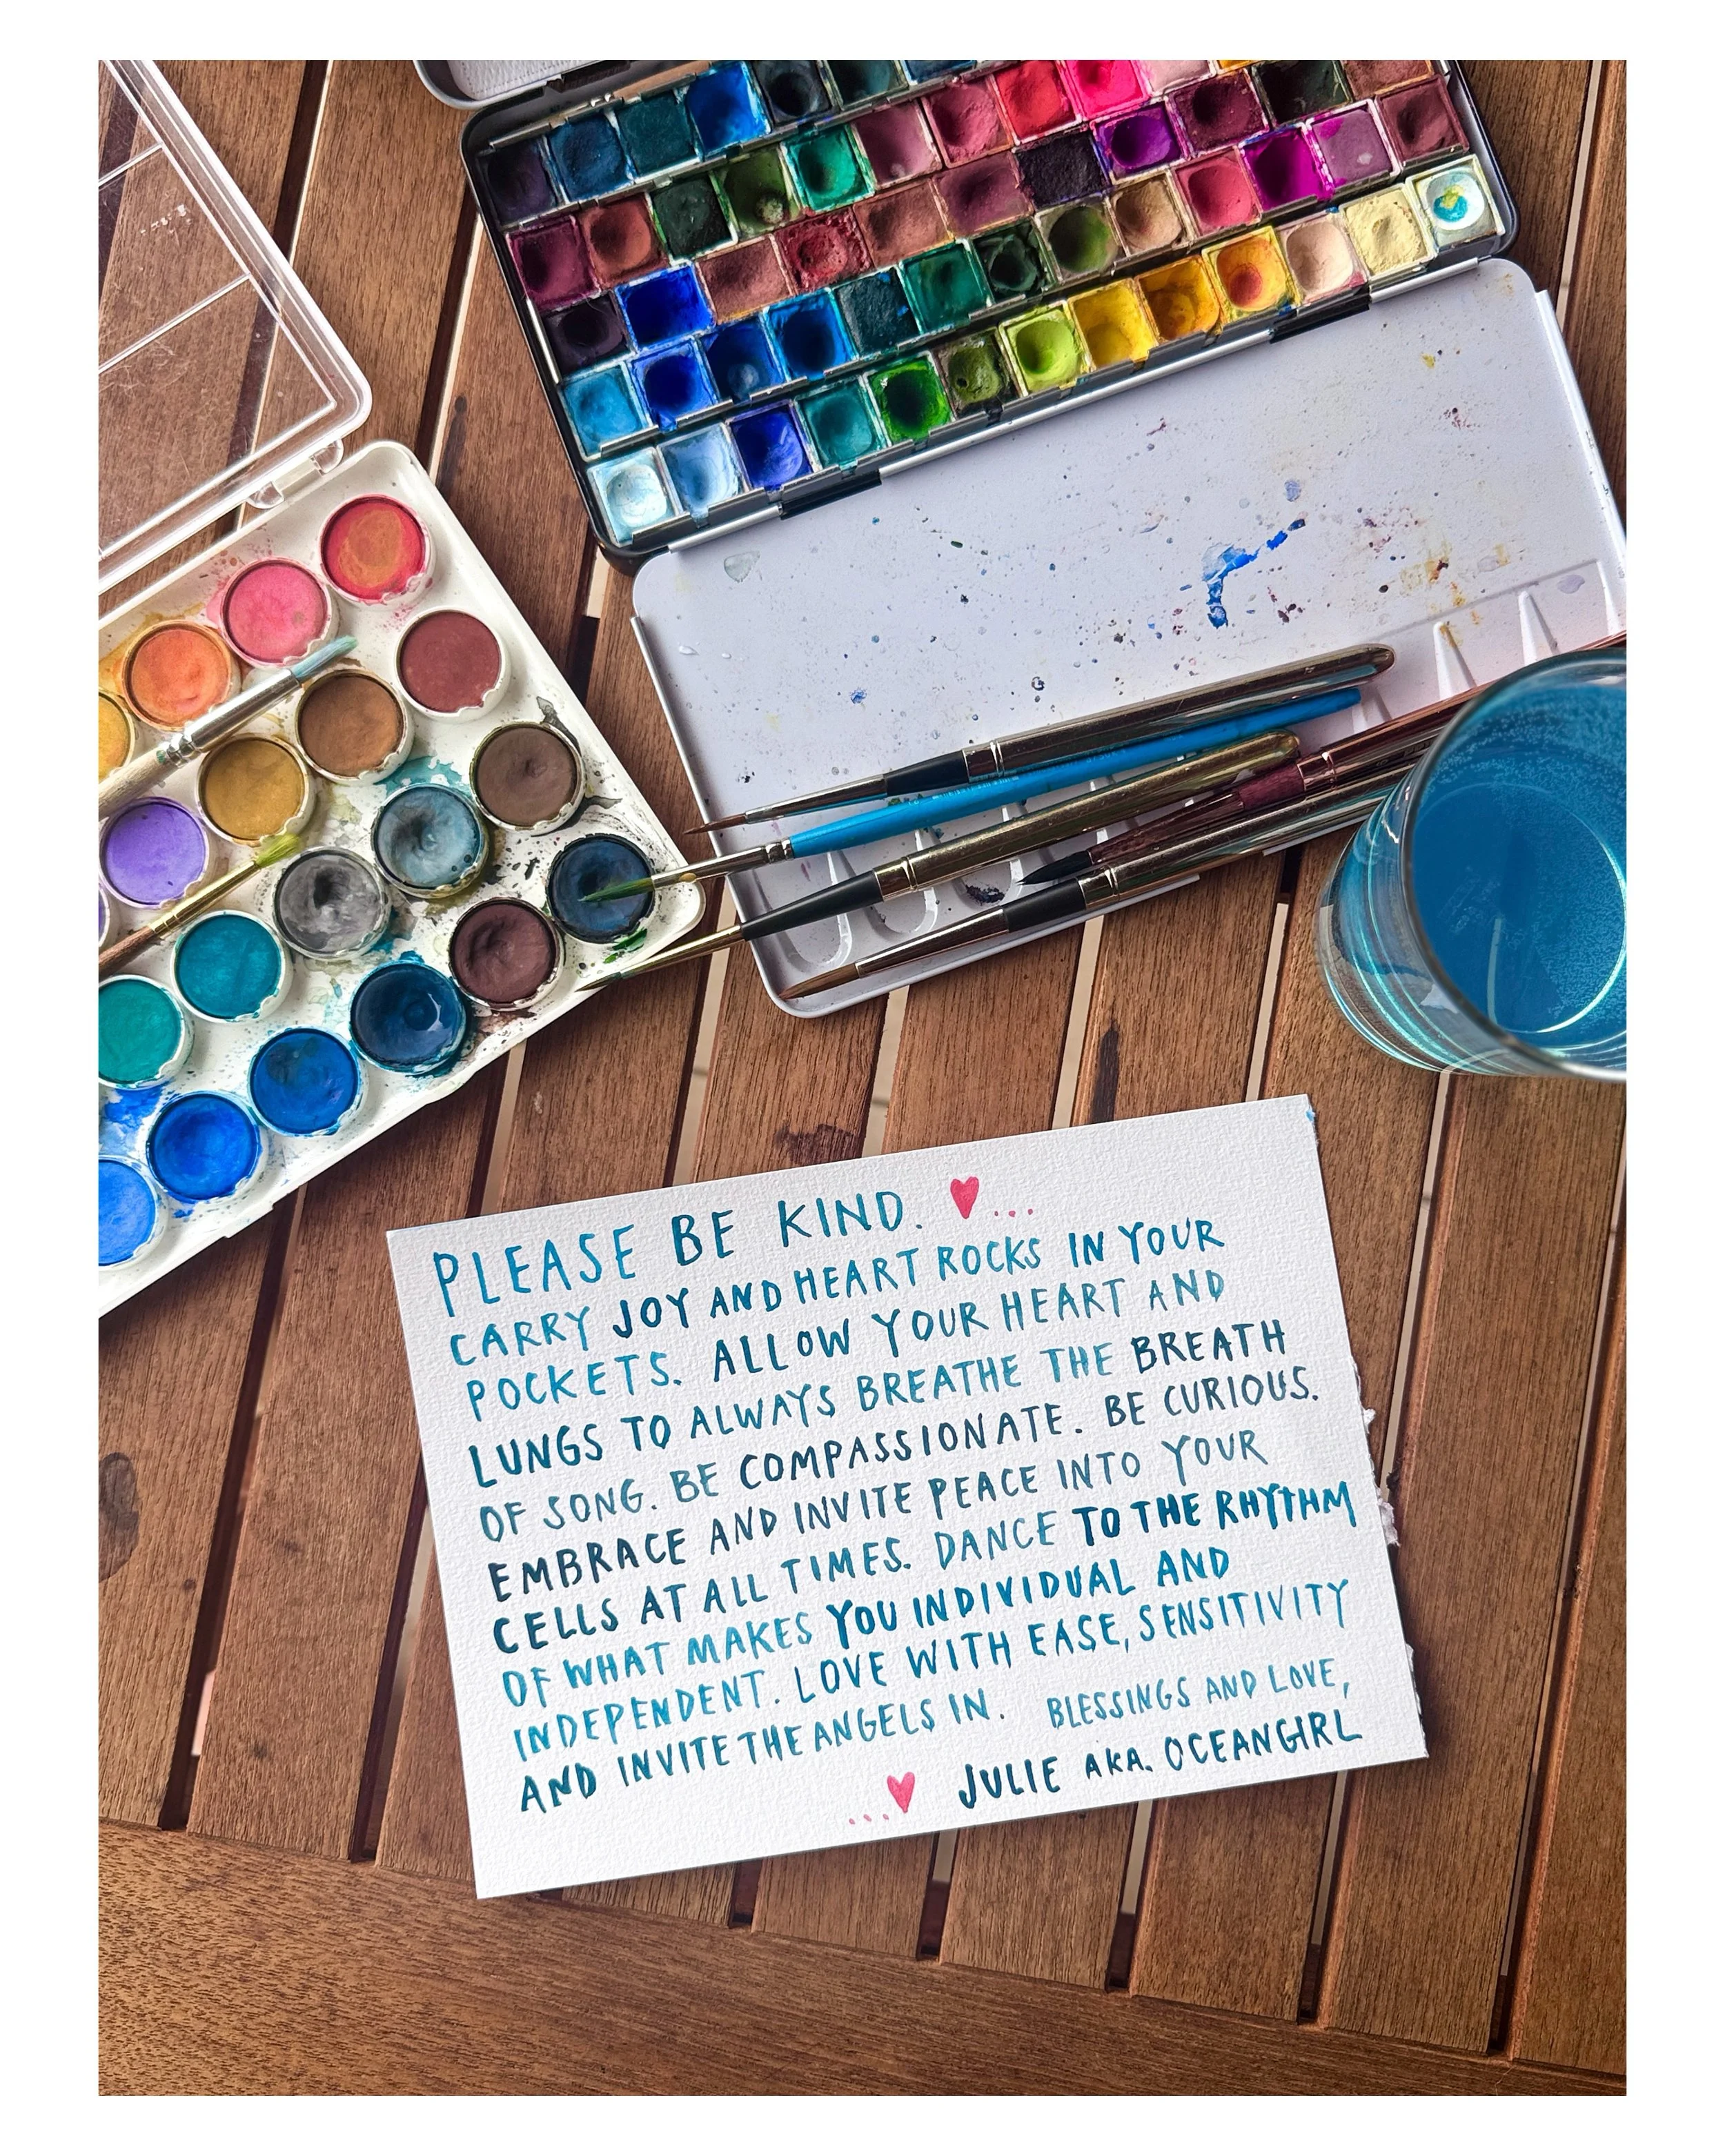 PLEASE BE KIND. ♥...
CARRY JOY AND HEART ROCKS IN YOUR
POCKETS. ALLOW YOUR HEART AND
LUNGS TO ALWAYS BREATHE THE BREATH
OF SONG. BE COMPASSIONATE. BE CURIOUS.
EMBRACE AND INVITE PEACE INTO YOUR
CELLS AT ALL TIMES. DANCE TO THE RHYTHM
OF WHAT MAKES YOU INDIVIDUAL AND
INDEPENDENT. LOVE WITH EASE, SENSITIVITY
AND INVITE THE ANGELS IN. BLESSINGS AND LOVE,
...♥ JULIE AKA. OCEANGIRL